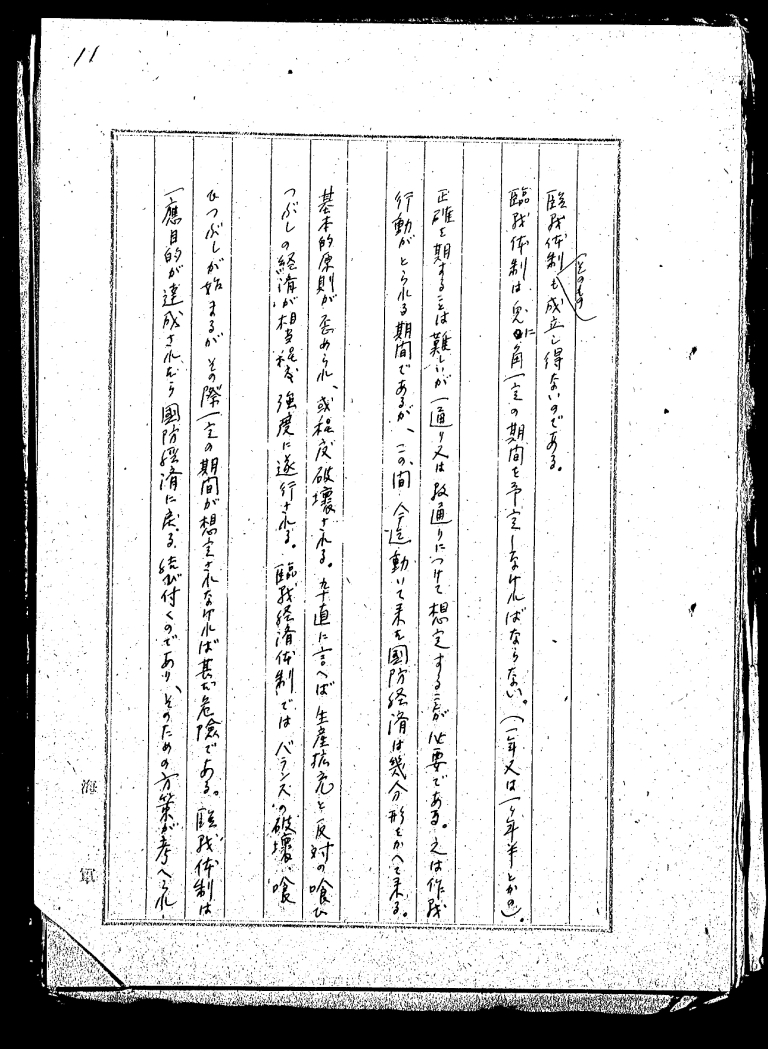 11
臨戦体制そのものも成立し得ないのである。
臨戦体制は兎に角一定の期間を予定しなければならない。(一年又は一ヶ年半とかの)。
正確を期することは難しいが一通り又は数通りにつけて想定することが必要である。之は作戦
行動がとられる期間であるが、この間今迄動いて来た國防経済は幾分形をかへて来る。
基本的原則が歪められ、或程度破壊される。卒直に言へば生産拡充と反対の喰ひ
つぶしの経済が相当程度強度に遂行される。臨戦経済体制ではバランスの破壊、喰
ひつぶしが始まるがその際一定の期間が想定されなければ甚だ危険である。臨戦体制は
一應目的が達成されたら國防経済に戻る、結び付くのであり、そのための方策が考へられ、
海軍